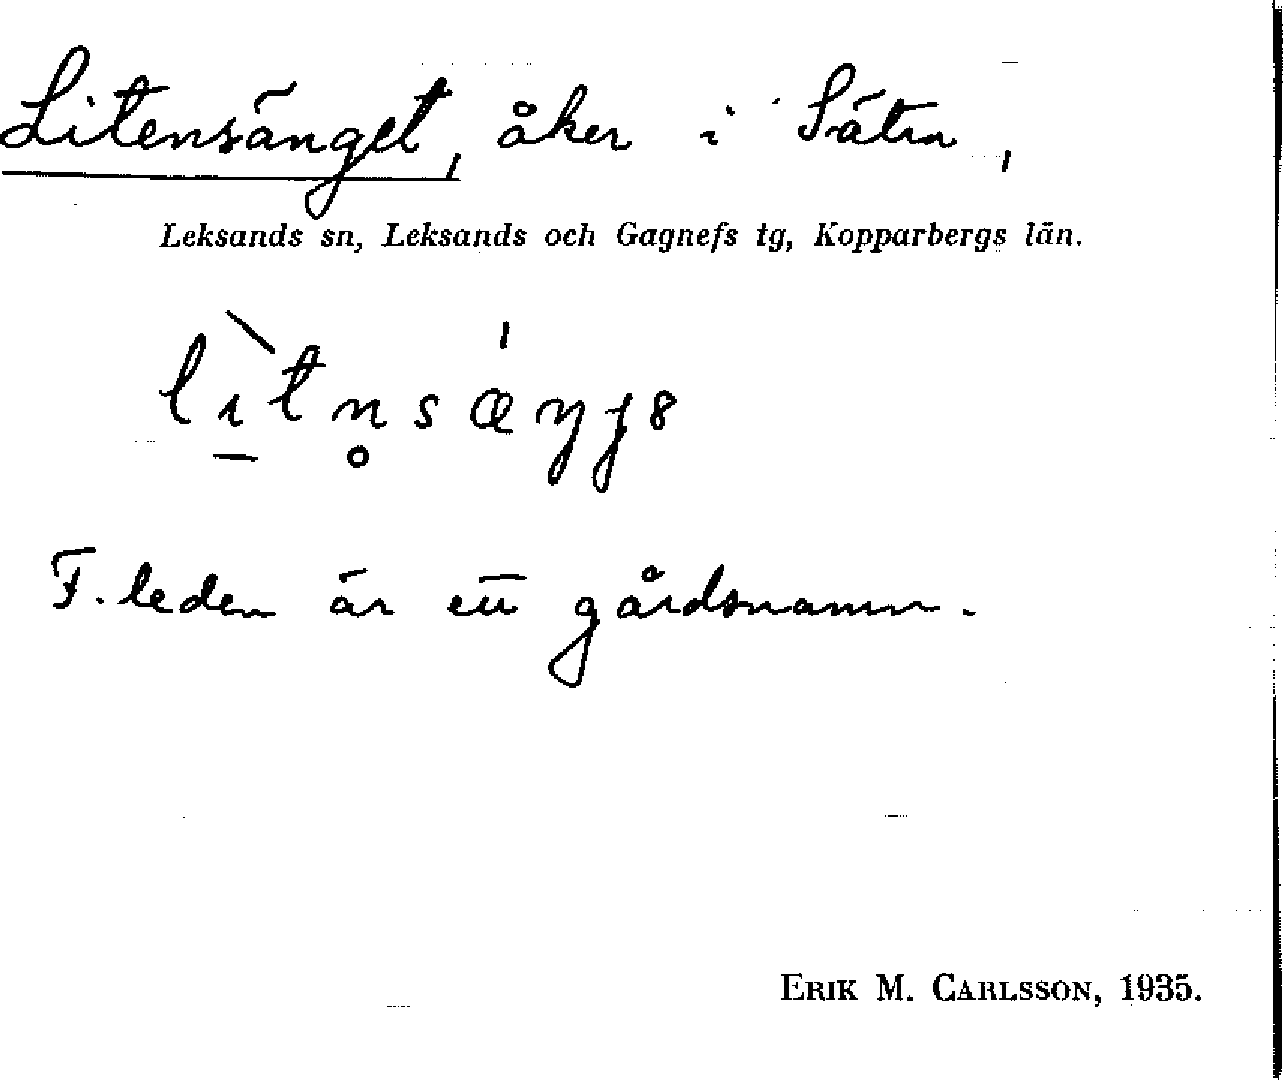 Litensänget, åker i Sätra,
Leksands sn, Leksands och Gagnefs tg, Kopparbergs län.
lı̱̀tn̥sǽŋjɞ
F. leden är ett gårdsnamn.
ERIK M. CARLSSON, 1935.